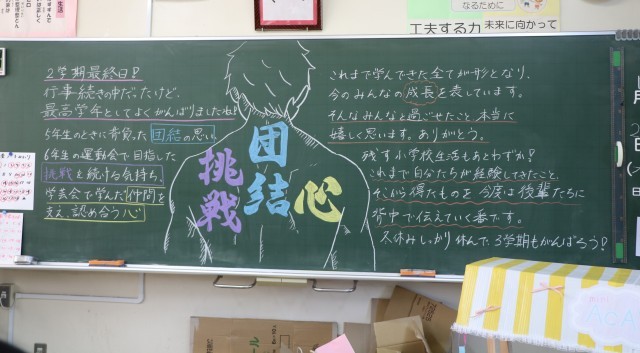 なるために
工夫する力
未来に向かって
2学期最終日!
行事続きの中だったけど、
最高学年としてよくがんばりましたね。
5年生のときに背負った団結の思い。
6年生の運動会で目指した
挑戦を続ける気持ち。
学芸会で学んだ仲間を
支え、認め合う心
挑戦
団結
心
これまで学んできた全てが形となり、
今のみんなの成長を表しています。
そんなみんなと過ごせたこと本当に
嬉しく思います。ありがとう。
残す小学校生活もあとわずか!
これまで自分たちが経験してきたこと、
そこから得たものを今度は後輩たちに
背中で伝えていく番です。
冬休みしっかり休んで、3学期もがんばろう!